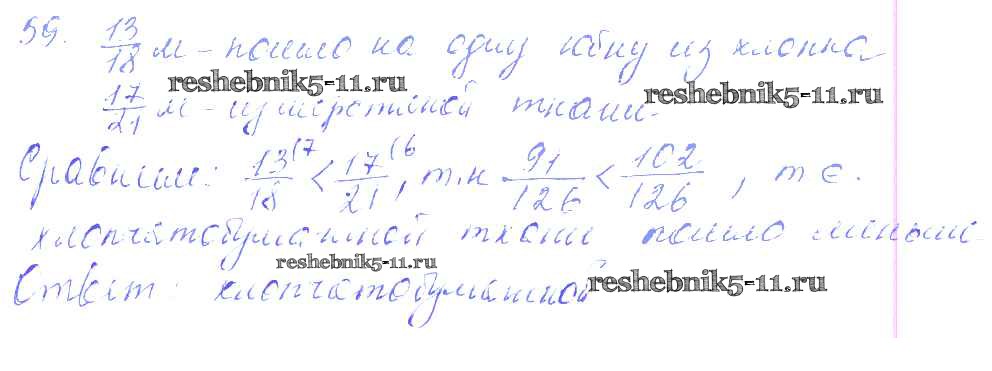 59. 13/18 м - пошло на одну юбку из хлопка
reshebnik5-11.ru
17/21 м - из шерстяной ткани.
reshebnik5-11.ru
Сравним: 13(7/18 < 17(6/21, т.к 91/126 < 102/126, т е.
хлопчатобумажной ткани пошло меньше
reshebnik5-11.ru
Ответ: хлопчатобумажной
reshebnik5-11.ru